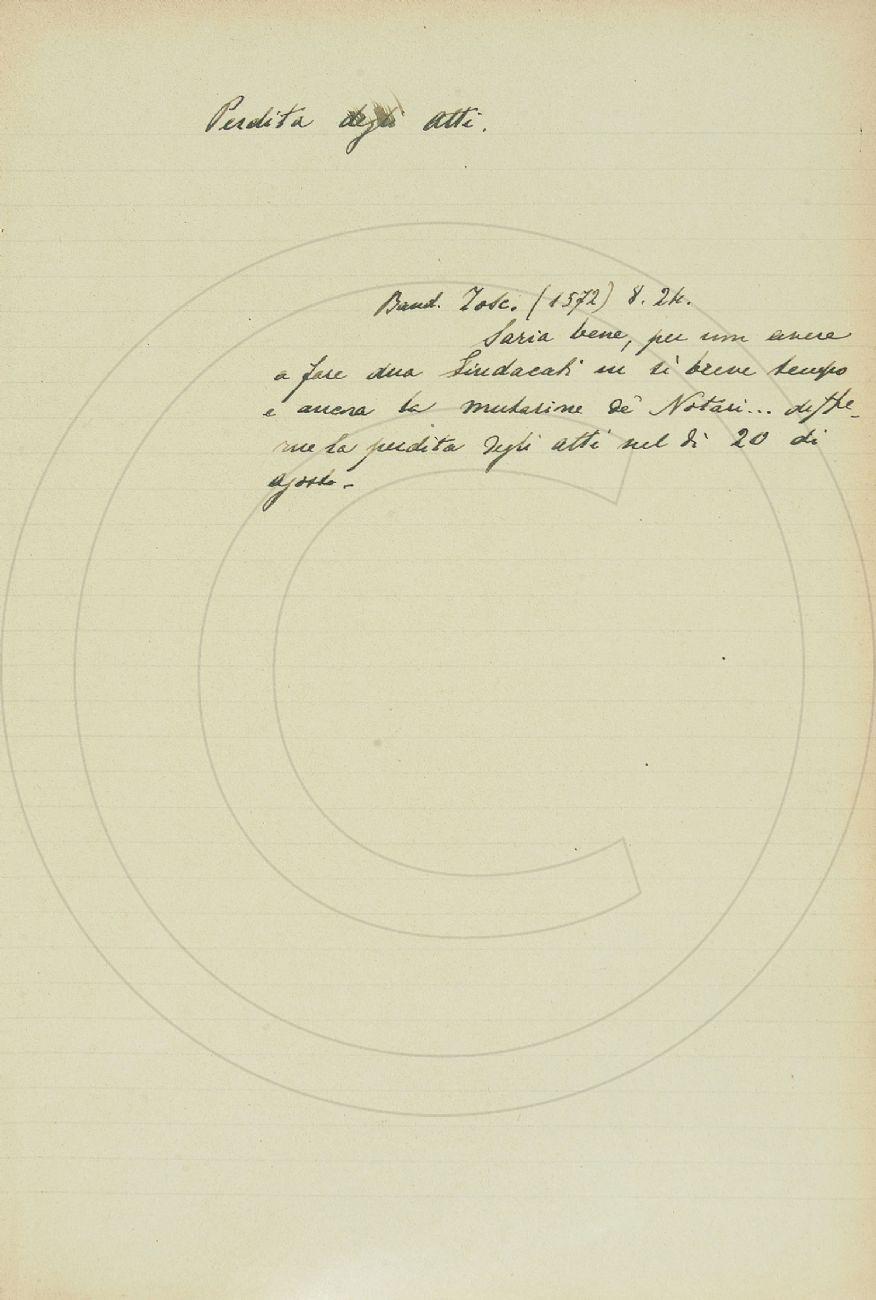 Perdita degli atti.
Band. Tosc. (1572) 8. 24.
Saria bene, per non avere
a fare dua Sindacati in sì breve tempo
e ancora la mutazione de' Notari... diffe-
rire la perdita degli atti nel dì 20 di
agosto-